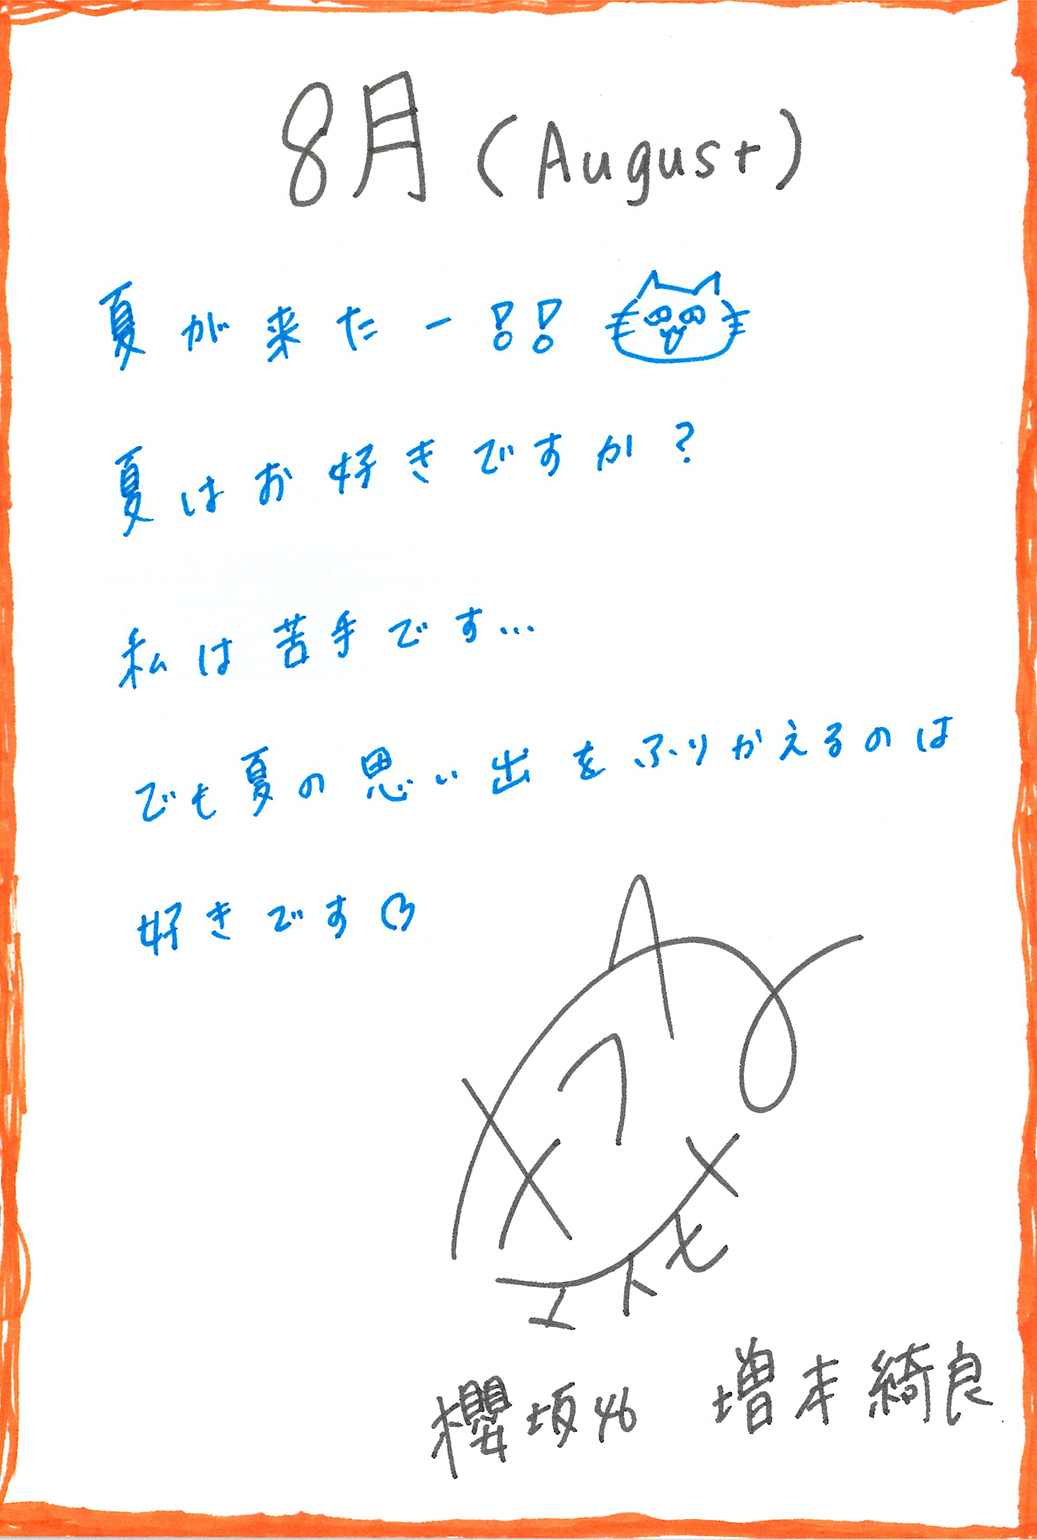 8月(August)
夏が来たー!!
夏はお好きですか?
私は苦手です…
でも夏の思い出をふりかえるのは
好きです♡
櫻坂46 増本綺良